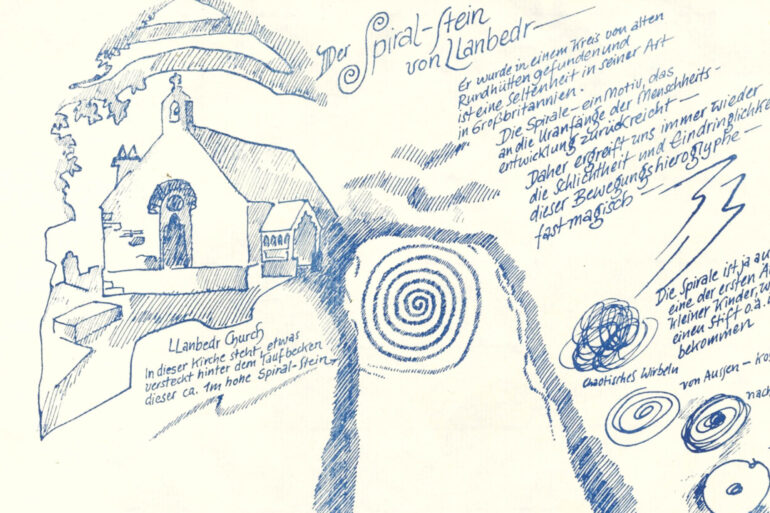 Der Spiral-Stein
von LLanbedr—
Er wurde in einem Kreis von alten
Rundhütten gefunden und
ist eine Seltenheit in seiner Art
in Großbritannien.
Die Spirale – ein Motiv, das
an die Uranfänge der Menschheits-
entwicklung zurückreicht —
Daher ergreift uns immer wieder
die Schlichtheit und Eindringlichke
dieser Bewegungshieroglyphe —
fast magisch —
LLanbedr Church
In dieser Kirche steht, etwas
versteckt hinter dem Taufbecken
dieser ca. 1m hohe Spiral-Stein
Die Spirale ist ja au
eine der ersten A
kleiner Kinder, w
einen Stift o.ä.
bekommen
Chaotisches Wirbeln
von Aussen – Ko
nach